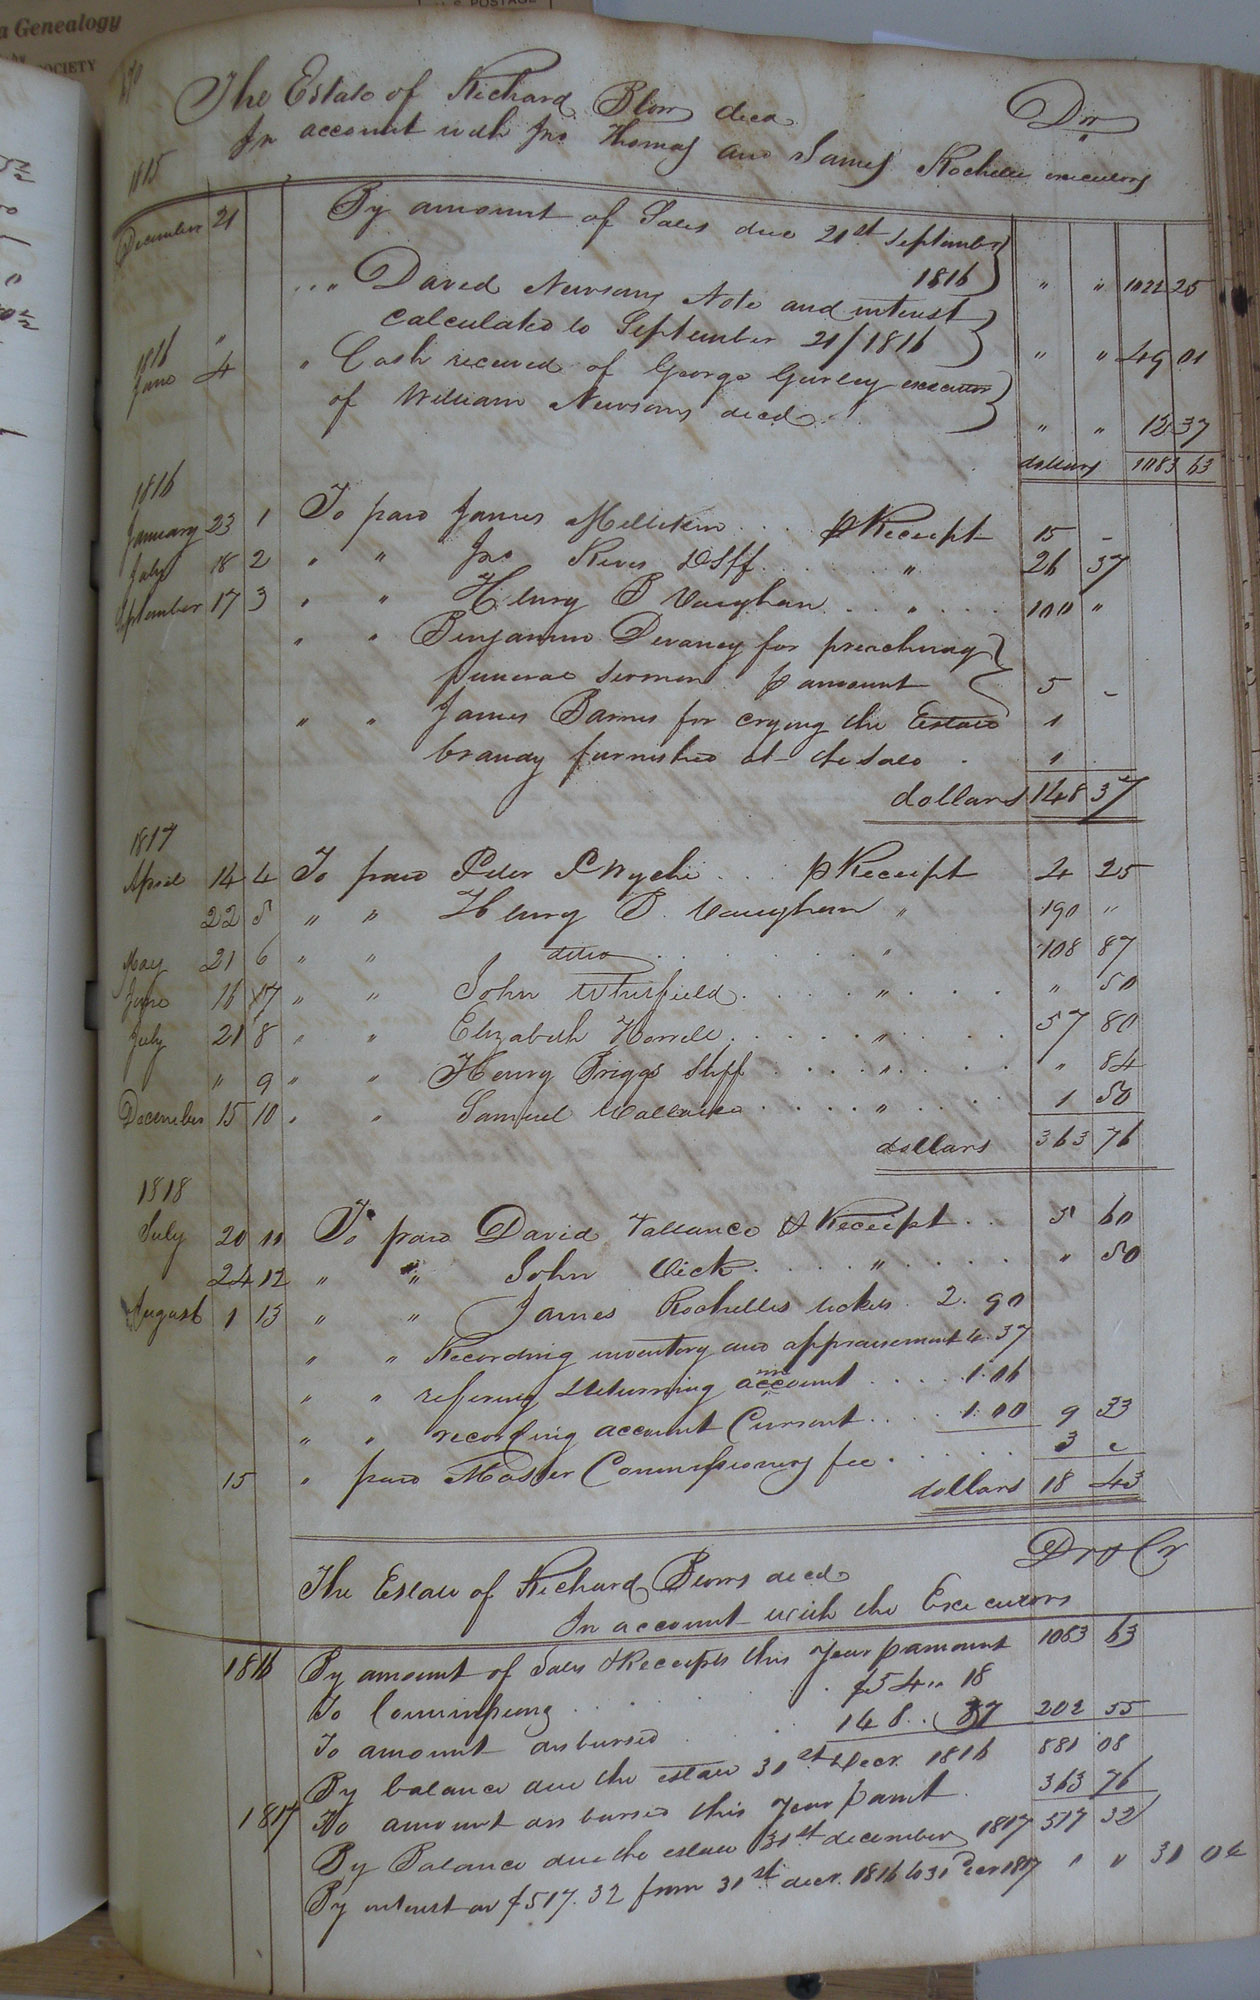 a Genealogy
SOCIETY
POSTAGE
The Estate of Richard Blow decd Dr
In account with Jno Thomas and James Rochelle executors
1815
December 21 By amount of Sales due 21st September
1816 " " 1022 25
" David Newsoms Note and interest
calculated to September 21/1816 " " 49 01
1816
June 4 " Cash received of George Gurley executor
of William Newsoms decd " " 12 37
dollars 1083 63
1816
January 23 1 To paid James Millikin p Receipt 15 -
July 18 2 " " Jno Rives DSff " 26 37
September 17 3 " " Henry B Vaughan " 100 "
" " Benjamin Devaney for preaching
funeral sermon p amount 5 -
" " James Barnes for crying the Estate 1
brandy furnished at the sale 1
dollars 148 37
1817
April 14 4 To paid Peter P Wyche p Receipt 4 25
22 5 " " Henry B. Vaughan " 190 "
May 21 6 " " ditto " 108 87
June 16 7 " " John Whitfield " " 50
July 21 8 " " Elizabeth Harrell " 57 80
" 9 " " Henry Briggs Shff " " 84
December 15 10 " " Samuel Wallace " 1 50
dollars 363 76
1818
July 20 11 To paid David Vallance p Receipt 5 60
24 12 " " John Vick " " 50
August 1 13 " " James Rochelles tickets 2.90
" " Recording inventory and appraisement 4.37
" " refering & returning account 1.06
" " recording account Current 1.00 9 33
15 " paid Master Commissioners fee 3 "
dollars 18 43
The Estate of Richard Blows decd Dr & Cr
In account with the Executors
1816 By amount of Sales & Receipts this year p amount 1083 63
To Commissions $54 " 18
To amount disbursed 148 .. 37 202 55
By balance due the estate 31st Decr. 1816 881 08
1817 To amount disbursed this year p amt 363 76
By Balance due the estate 31st december 1817 517 32
By interest on $517.32 from 31st decr. 1816 to 31 Decr 1817 " " 31 04